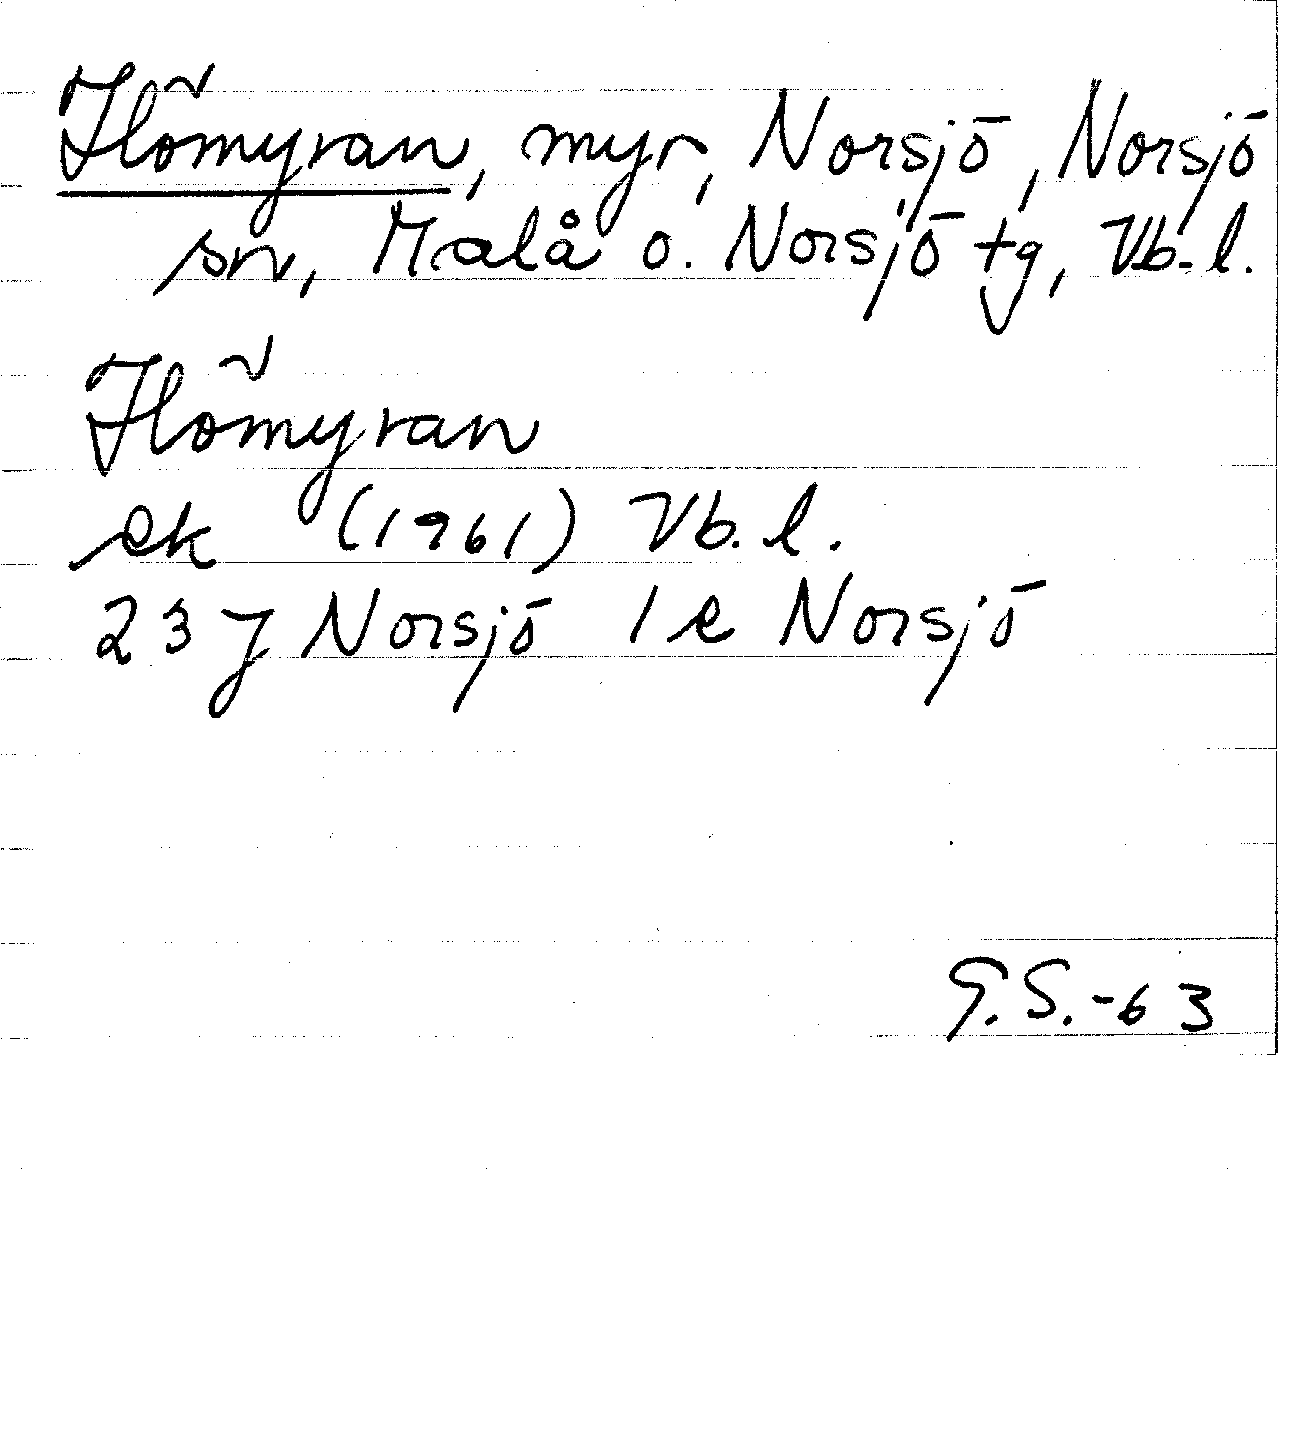 Flömyran, myr, Norsjö, Norsjö
sn, Malå o. Norsjö tg, Vb. l.
Flömyran
ek (1961) Vb. l.
23 J Norsjö 1 e Norsjö
G.S.-63